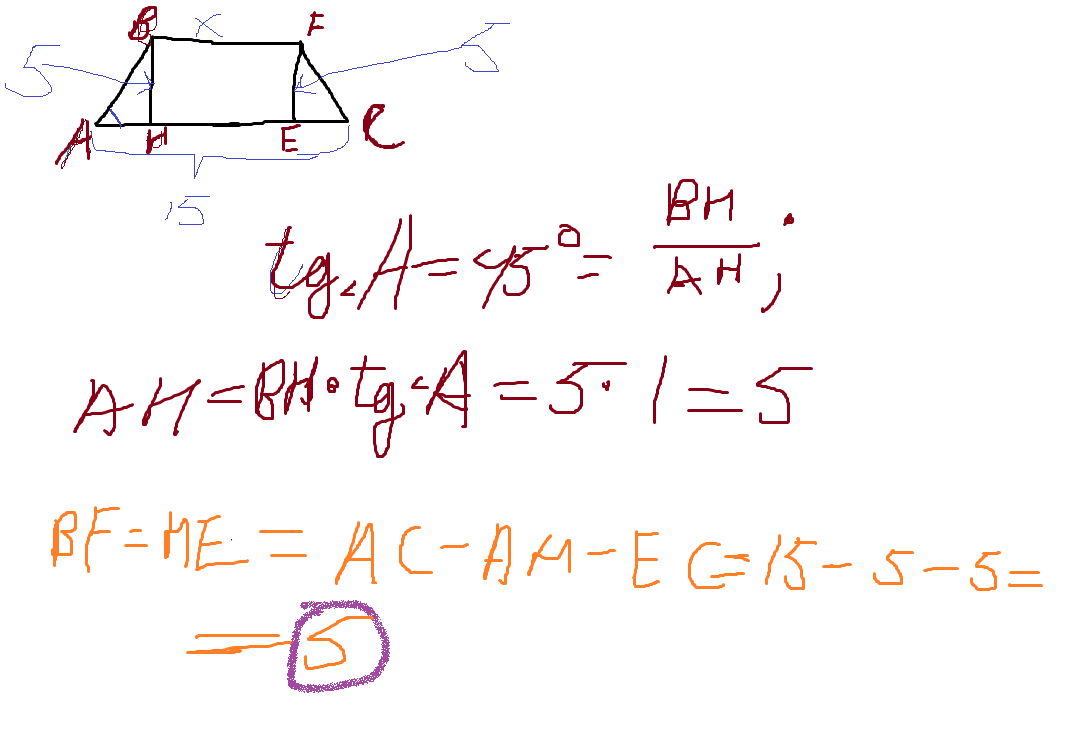 B x F
5 5
A H E C
15
tg∠A = 45° = BH/AH;
AH = BH · tg∠A = 5 · 1 = 5
BF = HE = AC - AH - EC = 15 - 5 - 5 =
= 5